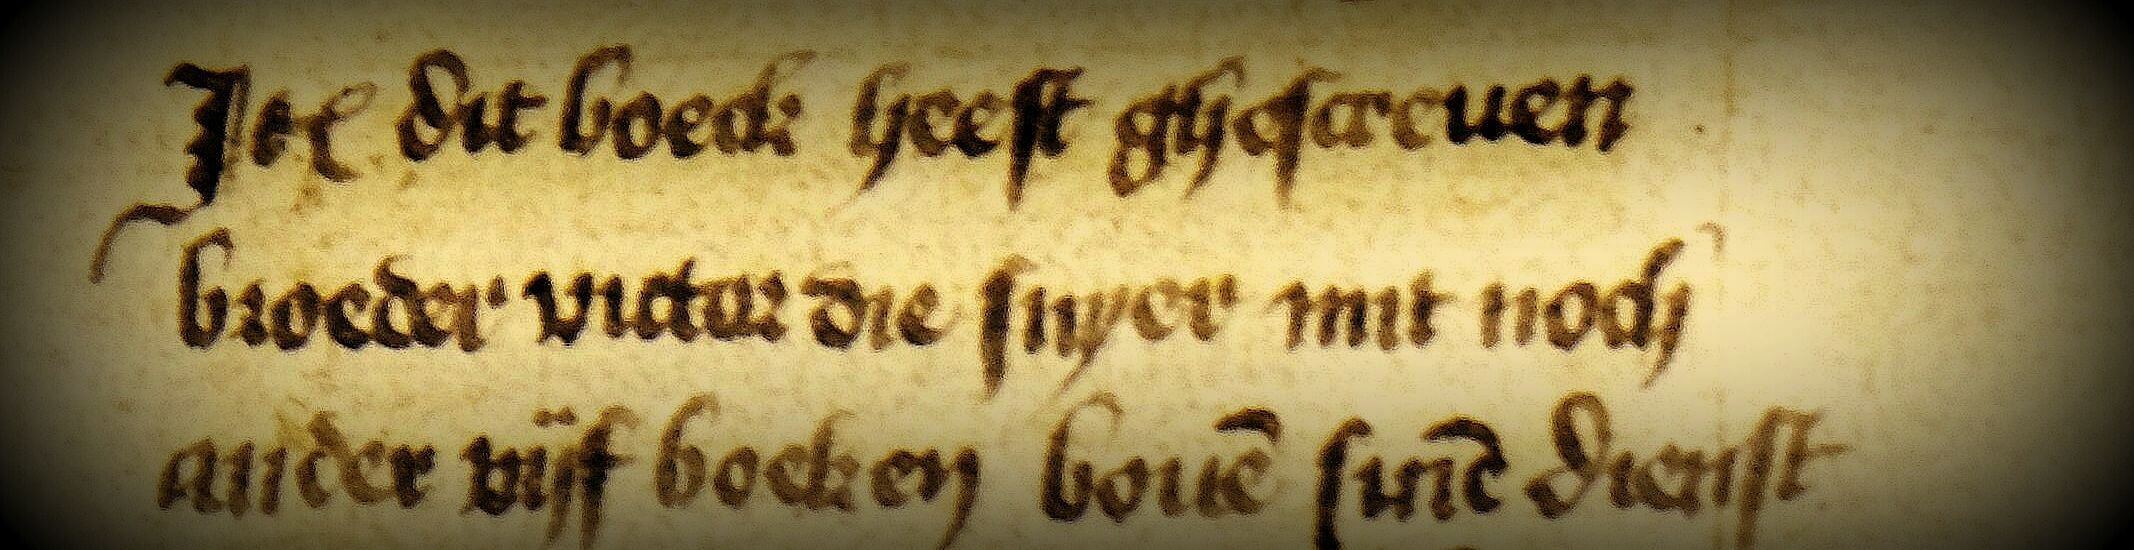 Jtē dit boeck heeft ghescreuen
broeder victor die snyer mit noch
ander vijf boeken bouē sinē dienst